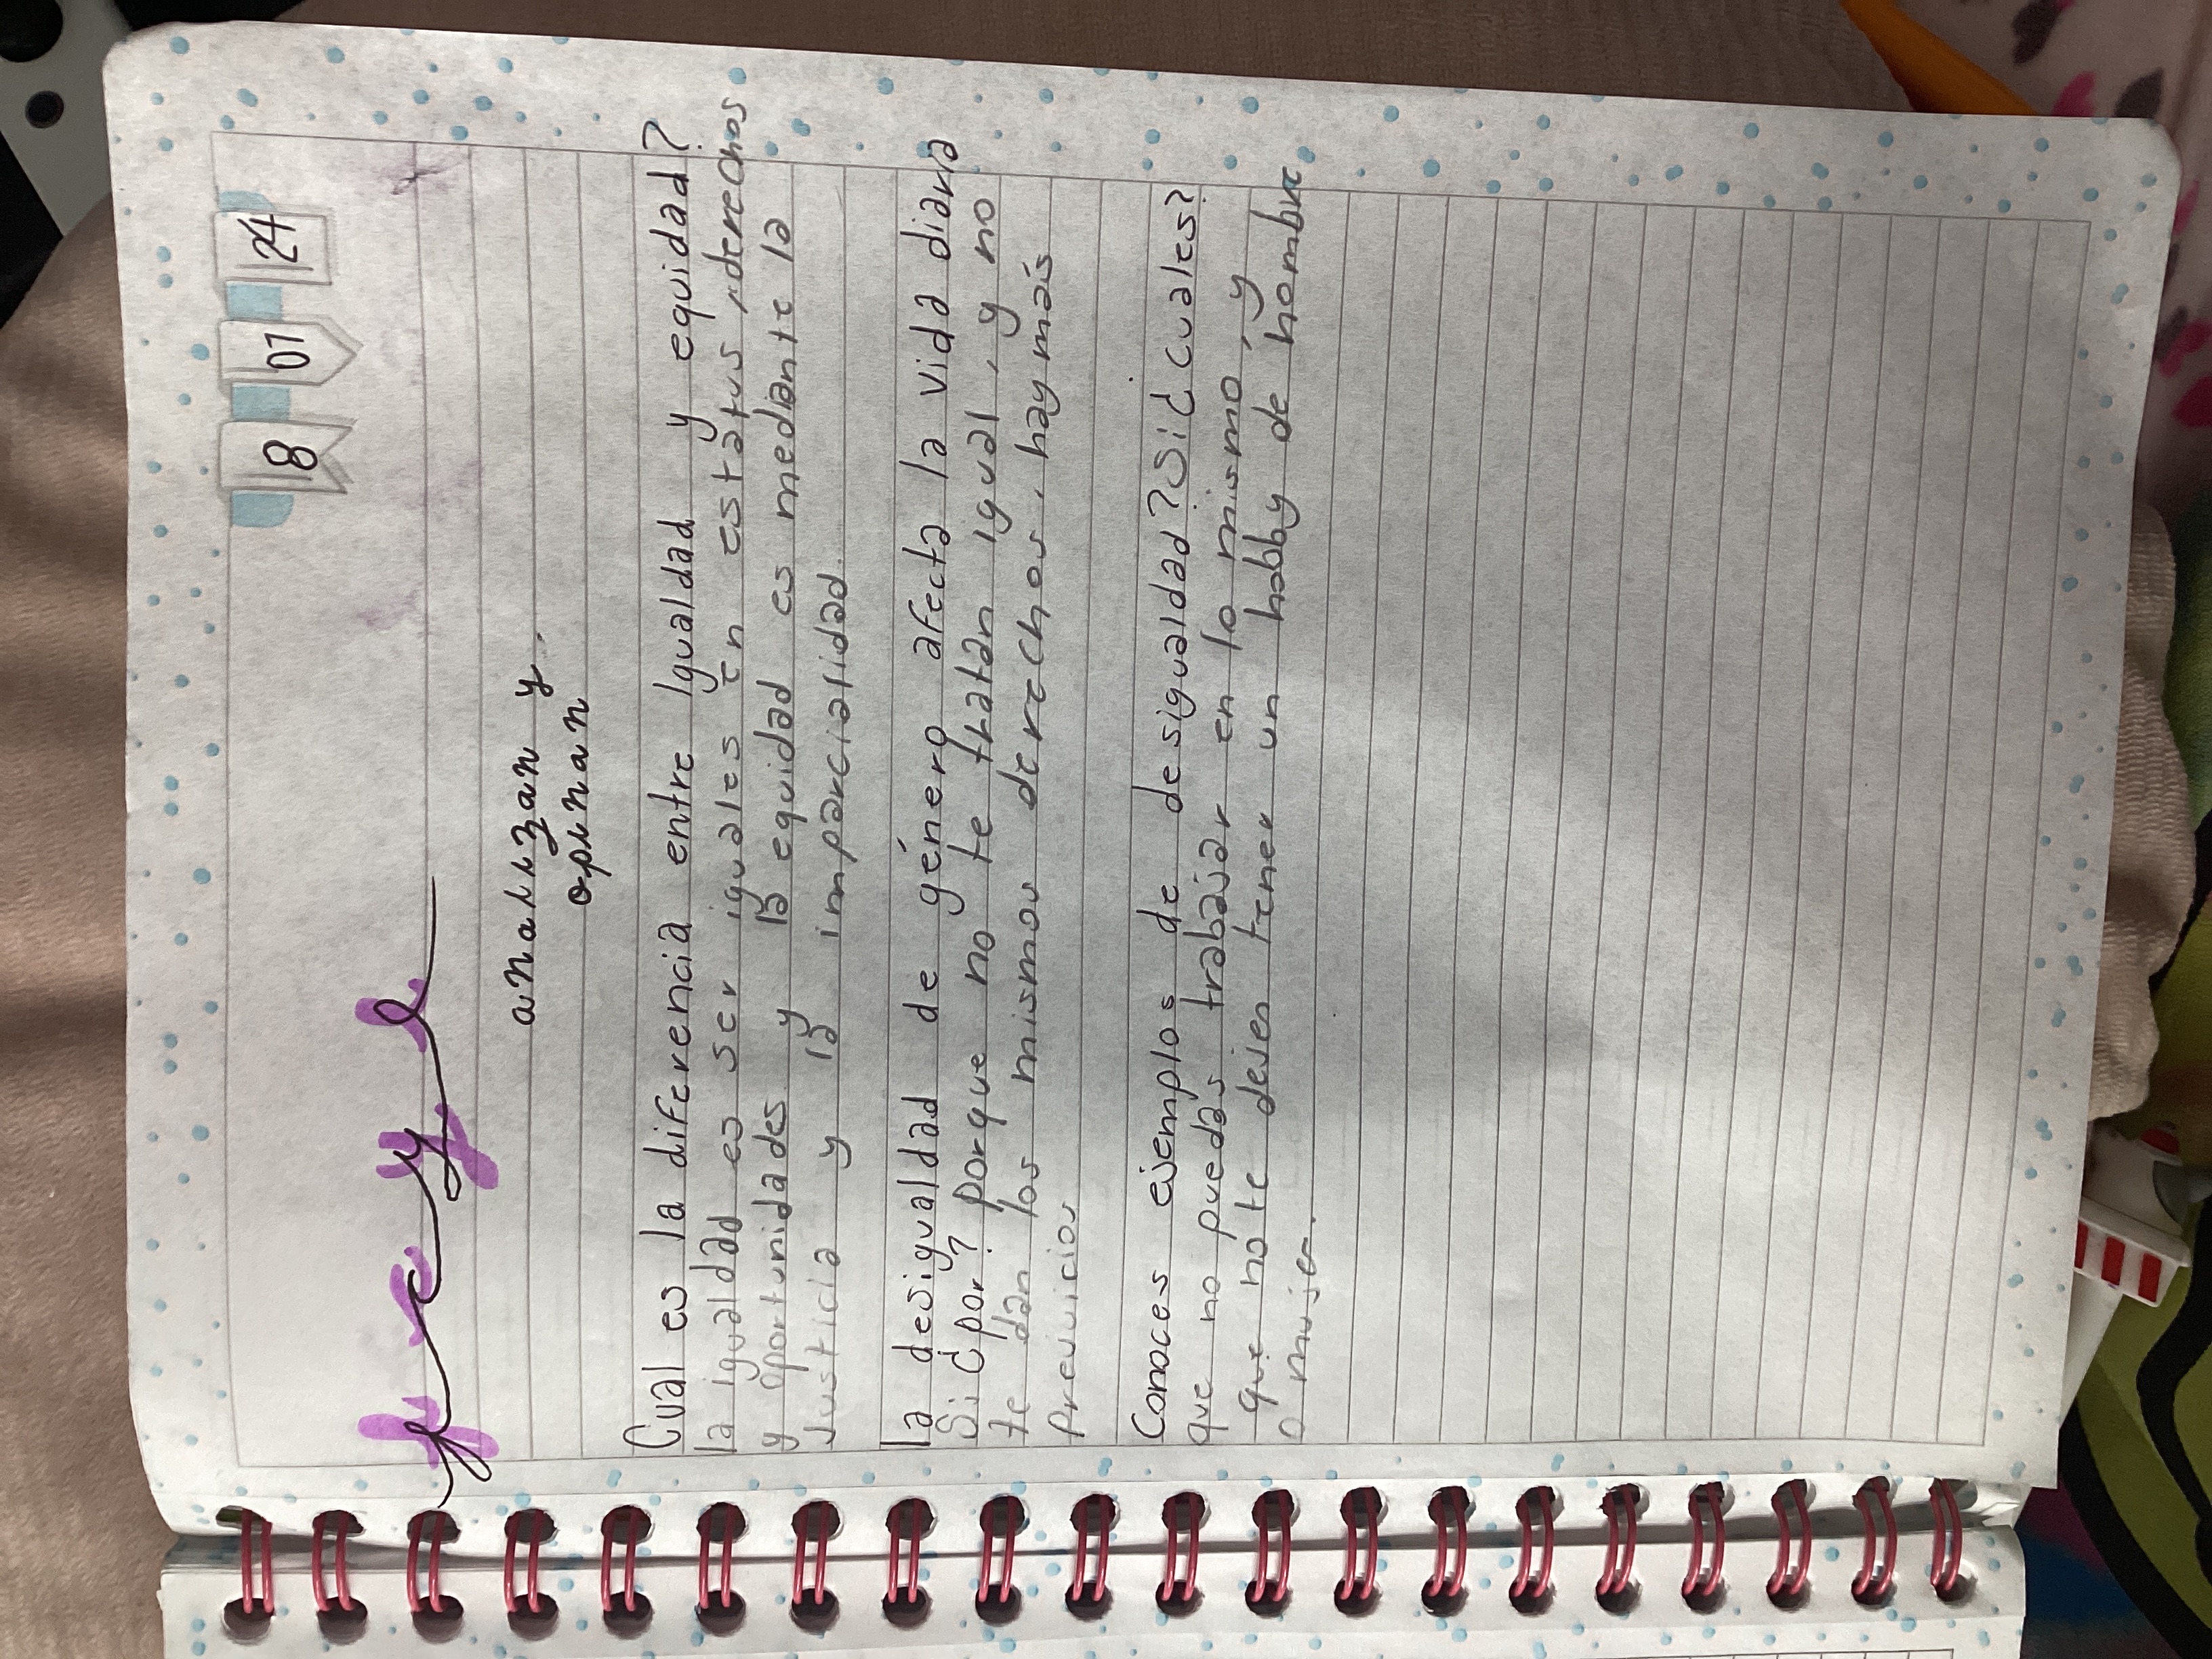 8 01 24
f c y e
analizan y
opinan
Cual es la diferencia entre Igualdad y equidad?
la igualdad es ser iguales en estatus, derechos
y oportunidades y la equidad es mediante la
Justicia y la imparcialidad.
la desigualdad de género afecta la vida diaria
Si ¿por? porque no te tratan igual, y no
te dan los mismos derechos, hay más
prejuicios
Conoces ejemplos de desigualdad? Si ¿cuales?
que no puedas trabajar en lo mismo, y
que no te dejen tener un hobby de hombre
o mujer.